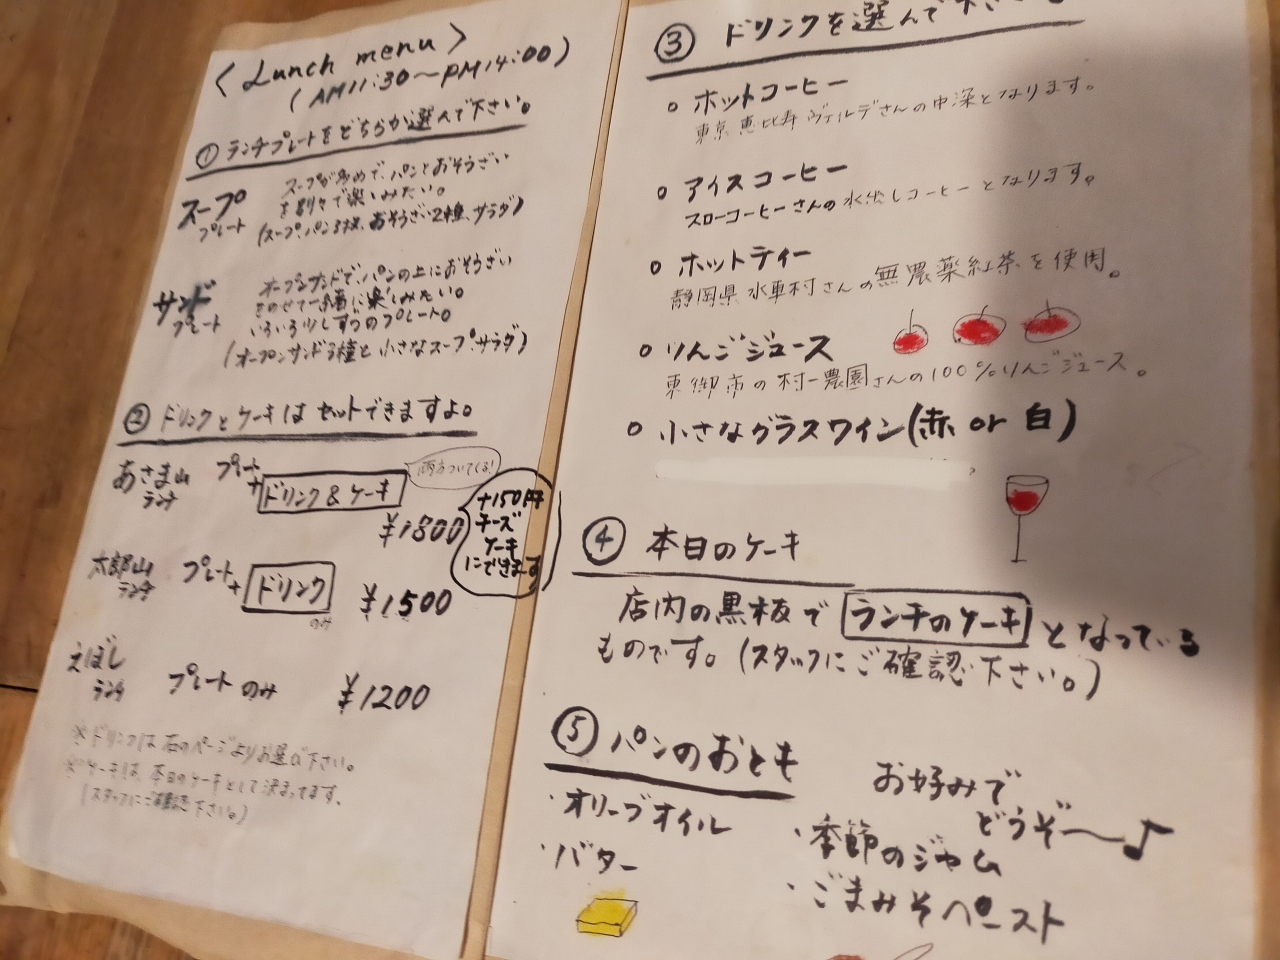 〈Lunch menu〉
(AM11:30〜PM14:00)
① ランチプレートをどちらか選んで下さい。
スープ
プレート
スープが多めで、パンとおそうざい
を別々で楽しみたい。
(スープ、パン3枚、おそうざい2種、サラダ)
サンド
プレート
オープンサンドで、パンの上におそうざい
をのせて一緒に楽しみたい。
いろいろ少しずつのプレート。
(オープンサンド3種と小さなスープ、サラダ)
② ドリンクとケーキはセットできますよ。
あさま山
ランチ
プレート
+
ドリンク & ケーキ
両方ついてくる!
¥1800
+150円
チーズ
ケーキ
にできます
太郎山
ランチ
プレート
+
ドリンク
のみ
¥1500
えぼし
ランチ
プレートのみ
¥1200
※ドリンクは右のページよりお選び下さい。
※ケーキは、本日のケーキとして決まってます。
(スタッフにご確認下さい。)
③ ドリンクを選んで下さい。
○ ホットコーヒー
東京恵比寿ヴェルデさんの中深となります。
○ アイスコーヒー
スローコーヒーさんの水出しコーヒーとなります。
○ ホットティー
静岡県水車村さんの無農薬紅茶を使用。
○ りんごジュース
東御市の村一農園さんの100%りんごジュース。
○ 小さなグラスワイン(赤 or 白)
④ 本日のケーキ
店内の黒板でランチのケーキとなっている
ものです。(スタッフにご確認下さい。)
⑤ パンのおとも
お好みで
どうぞ〜♪
・オリーブオイル
・バター
・季節のジャム
・ごまみそペースト